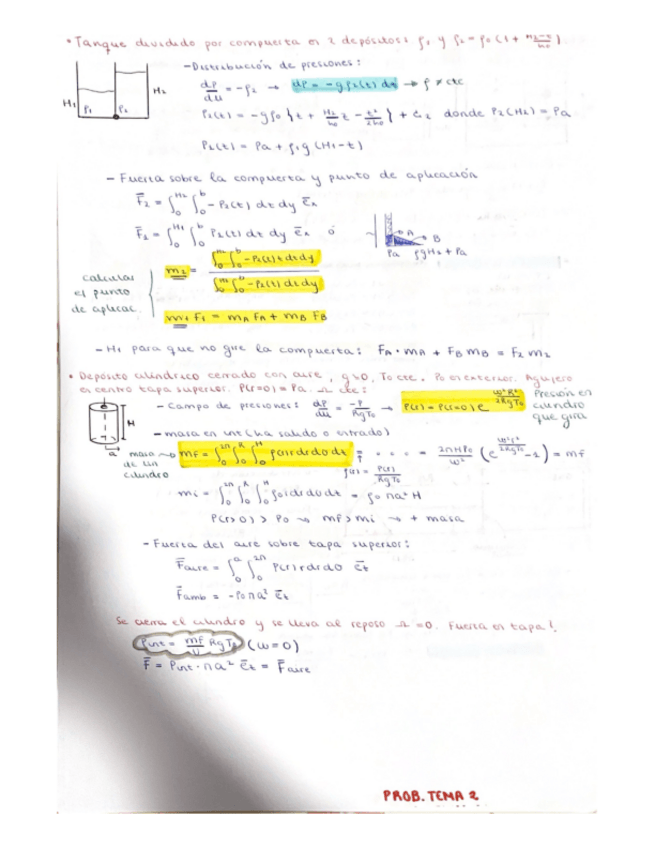 • Tanque dividido por compuerta en 2 depósitos: ρ₁ y ρ₂ = ρ₀ (1 +
- Distribución de presiones:
H₁ ρ₁ ρ₂ H₂
→ dP = -g ρ₂(z) dz → ρ ≠ cte
P₂(z) = -gρ₀ { z + H₂/h₀ z - z²/2h₀ } + C₂ donde P₂(H₂) = Pa
P₁(z) = Pa + ρ₁g (H₁-z)
- Fuerza sobre la compuerta y punto de aplicación
F̄₂ = ∫₀^H₂ ∫₀^b -P₂(z) dz dy ēx
F̄₁ = ∫₀^H₁ ∫₀^b P₁(z) dz dy ēx ó
A B
Pa ρgH₁ + Pa
calcular el punto de aplicac.
m₂ =
m₁ F₁ = mA FA + mB FB
- H₁ para que no gire la compuerta: FA · mA + FB mB = F₂ m₂
• Depósito cilíndrico cerrado con aire, g≈0, To cte. Po en exterior. Agujero
en centro tapa superior. P(r=0) = Pa. Ω cte:
H
a
- Campo de presiones:
→ P(r) = P(r=0) e^(ω²r²/2RgTo)
Presión en cilindro que gira
- masa en int (ha salido o entrado)
masa de un cilindro
mf = ∫₀^2π ∫₀^R ∫₀^H ρ(r) r dr dθ dz = ... = 2πHPo/ω² (e^(ω²r²/2RgTo) - 1) = mf
ρ(r) = P(r)/RgTo
mi = ∫₀^2π ∫₀^R ∫₀^H ρ₀ r dr dθ dz = ρ₀ π a² H
P(r>0) > Po → mf > mi → + masa
- Fuerza del aire sobre tapa superior:
F̄aire = ∫₀^a ∫₀^2π P(r) r dr dθ ēz
F̄amb = -Po π a² ēz
Se cierra el cilindro y se lleva al reposo Ω = 0. Fuerza en tapa?
Pint = mf/V RgTo (ω=0)
F̄ = Pint · π a² ēz = F̄aire
PROB. TEMA 2